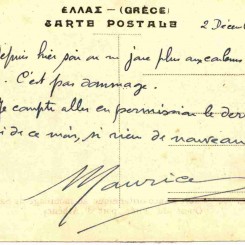 ΕΛΛΑΣ — (GRÈCE)
CARTE POSTALE
2 Décem
depuis hier soir on ne joue plus aux
C'est pas dommage.
Je compte aller en permission le der
di de ce mois, si rien de nouveau
Maurice